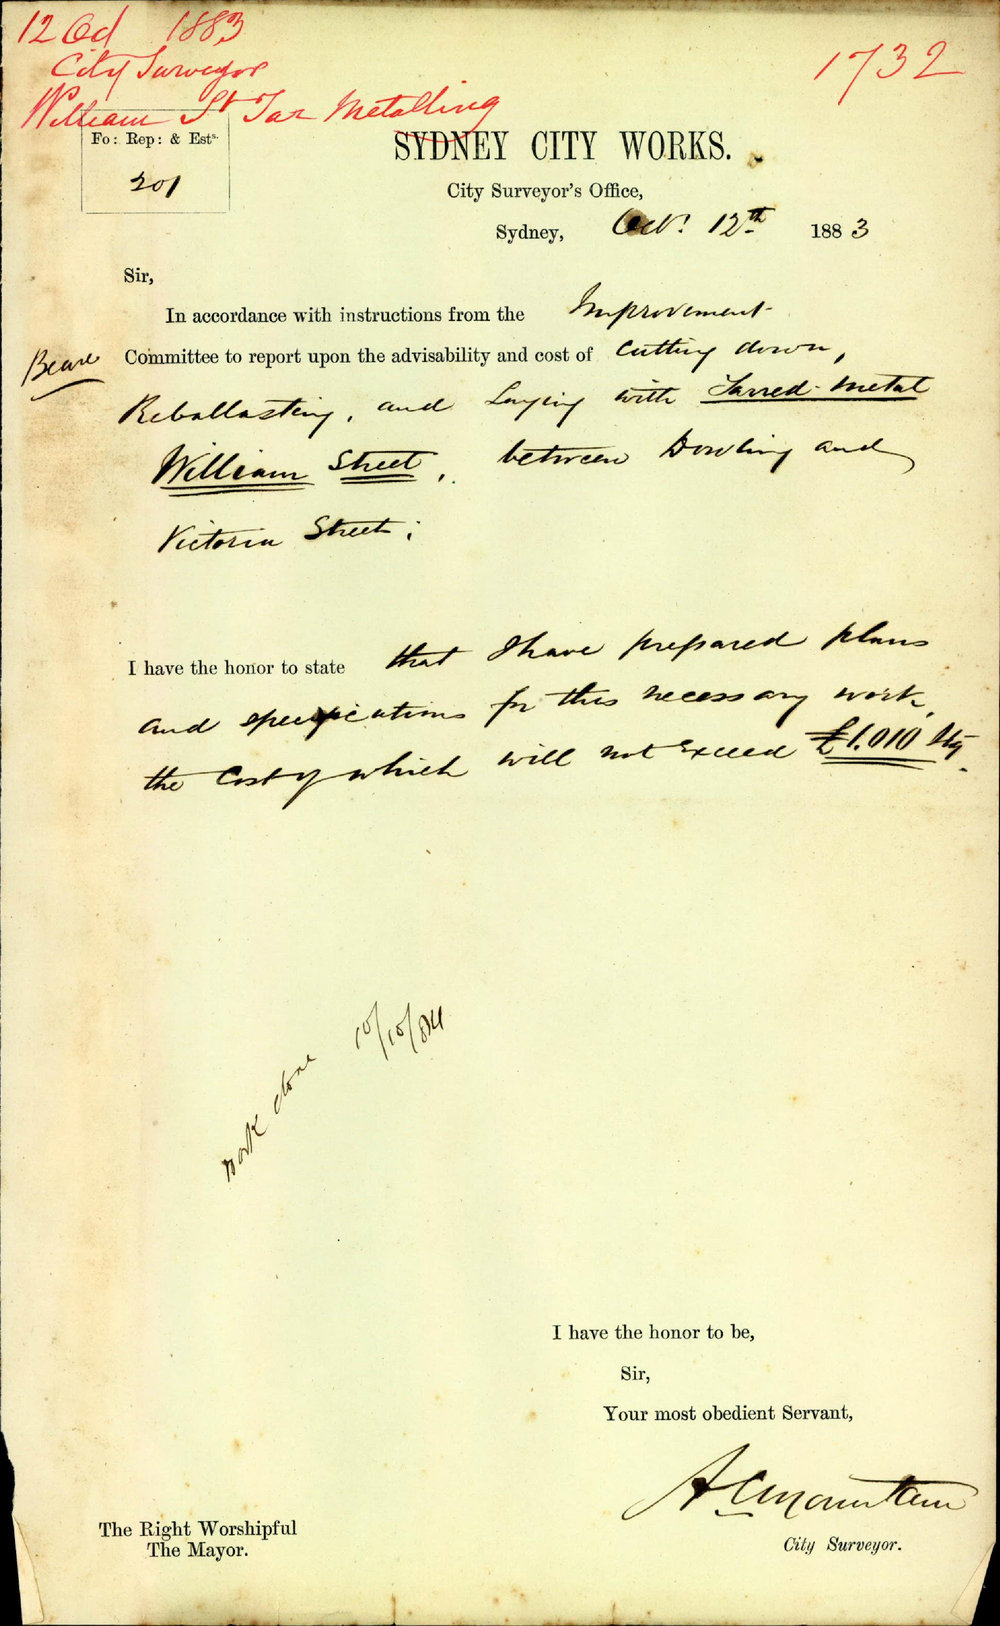 12 Oct 1883
City Surveyor
William St Tar Metalling
1732
Fo: Rep: & Ests.
201
SYDNEY CITY WORKS.
City Surveyor's Office,
Sydney, Oct. 12th 1883
Sir,
In accordance with instructions from the Improvement
Committee to report upon the advisability and cost of Cutting down,
Reballasting, and Laying with Tarred-metal
William Street, between Dowling and
Victoria Street;
I have the honor to state that I have prepared plans
and specifications for this necessary work,
the Cost of which will not Exceed £1,010 Stg.
work done 10/10/84
I have the honor to be,
Sir,
Your most obedient Servant,
A C Mountain
City Surveyor.
The Right Worshipful
The Mayor.